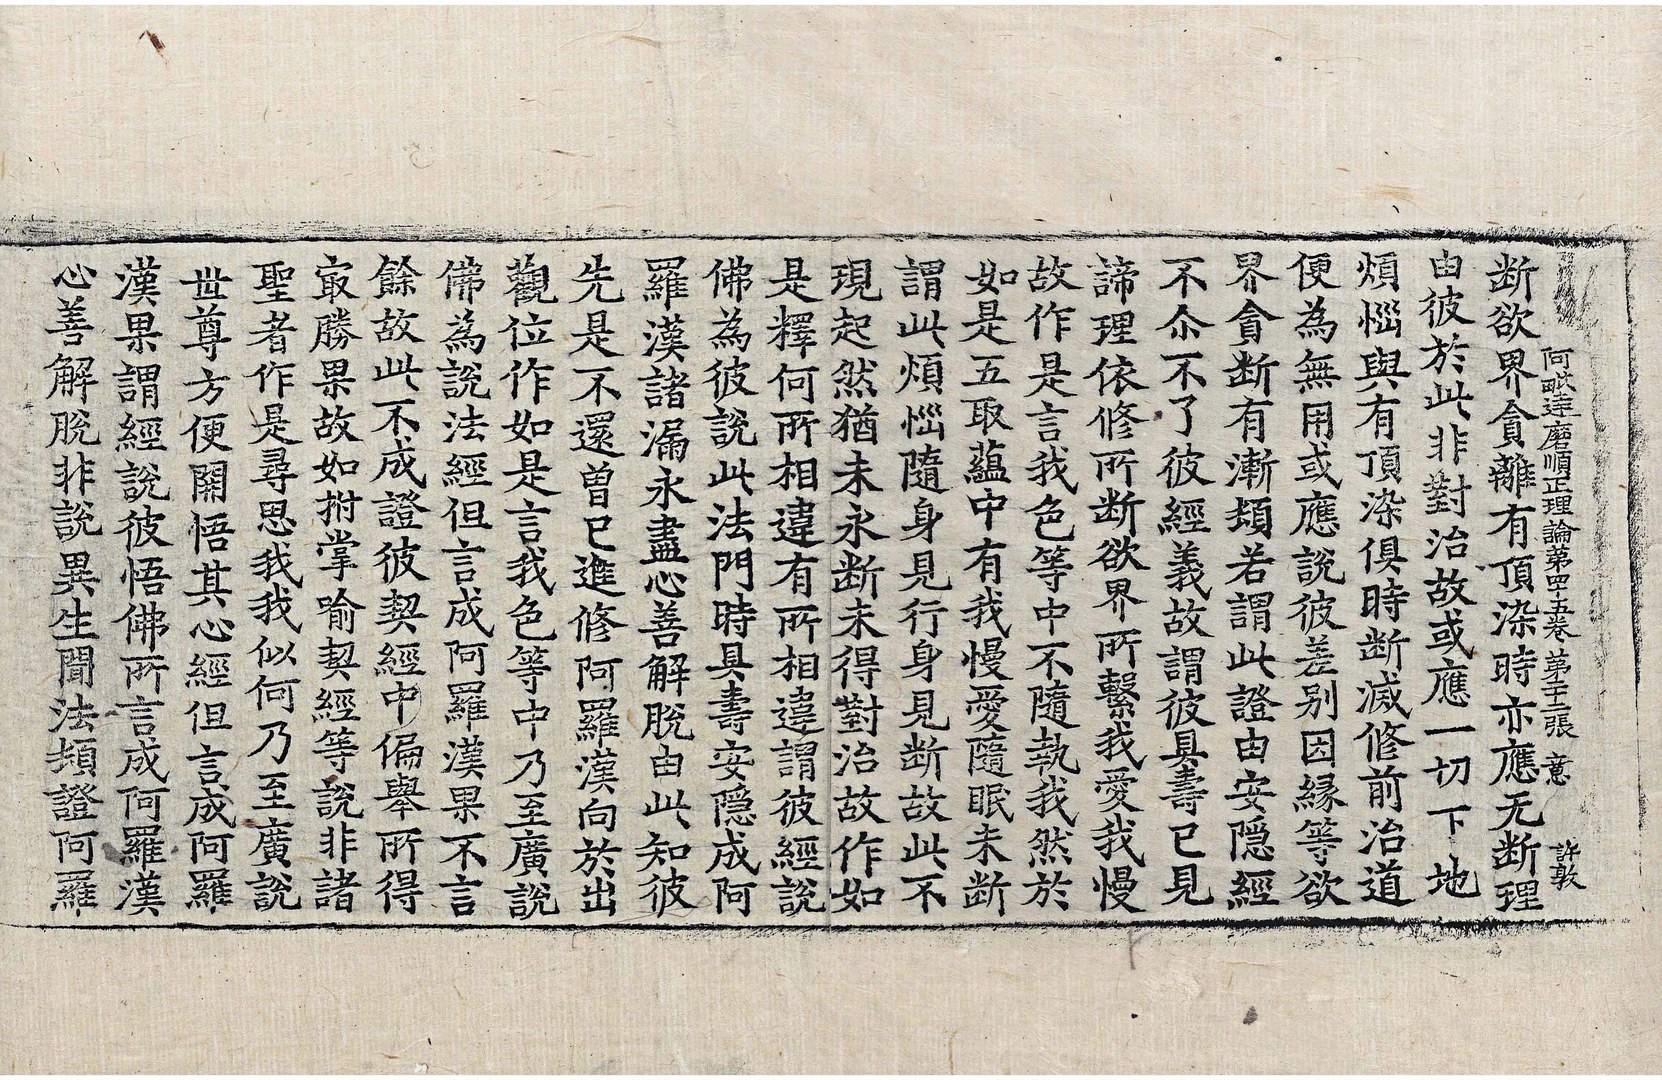 阿毗達磨順正理論第四十五卷 第十二張 意 許敦
断欲界貪離有頂染時亦應无断理
由彼於此非對治故或應一切下地
煩惱與有頂染俱時断滅修前治道
便為無用或應說彼差别因縁等欲
界貪断有漸類若謂此證由安隠經
不尒不了彼經義故謂彼具壽已見
諦理依修所断欲界所繫我愛我慢
故作是言我色等中不隨執我然於
如是五取蘊中有我慢愛隨眠未断
謂此煩惱隨身見行身見断故此不
現起然猶未永断未得對治故作如
是釋何所相違有所相違謂彼經說
佛為彼說此法門時具壽安隠成阿
羅漢諸漏永盡心善解脫由此知彼
先是不還曽已進修阿羅漢向於出
觀位作如是言我色等中乃至廣說
佛為說法經但言成阿羅漢果不言
餘故此不成證彼契經中偏舉所得
㝡勝果故如拊掌喻契經等說非諸
聖者作是尋思我我似何乃至廣說
世尊方便開悟其心經但言成阿羅
漢果謂經說彼悟佛所言成阿羅漢
心善解脫非說異生聞法頓證阿羅